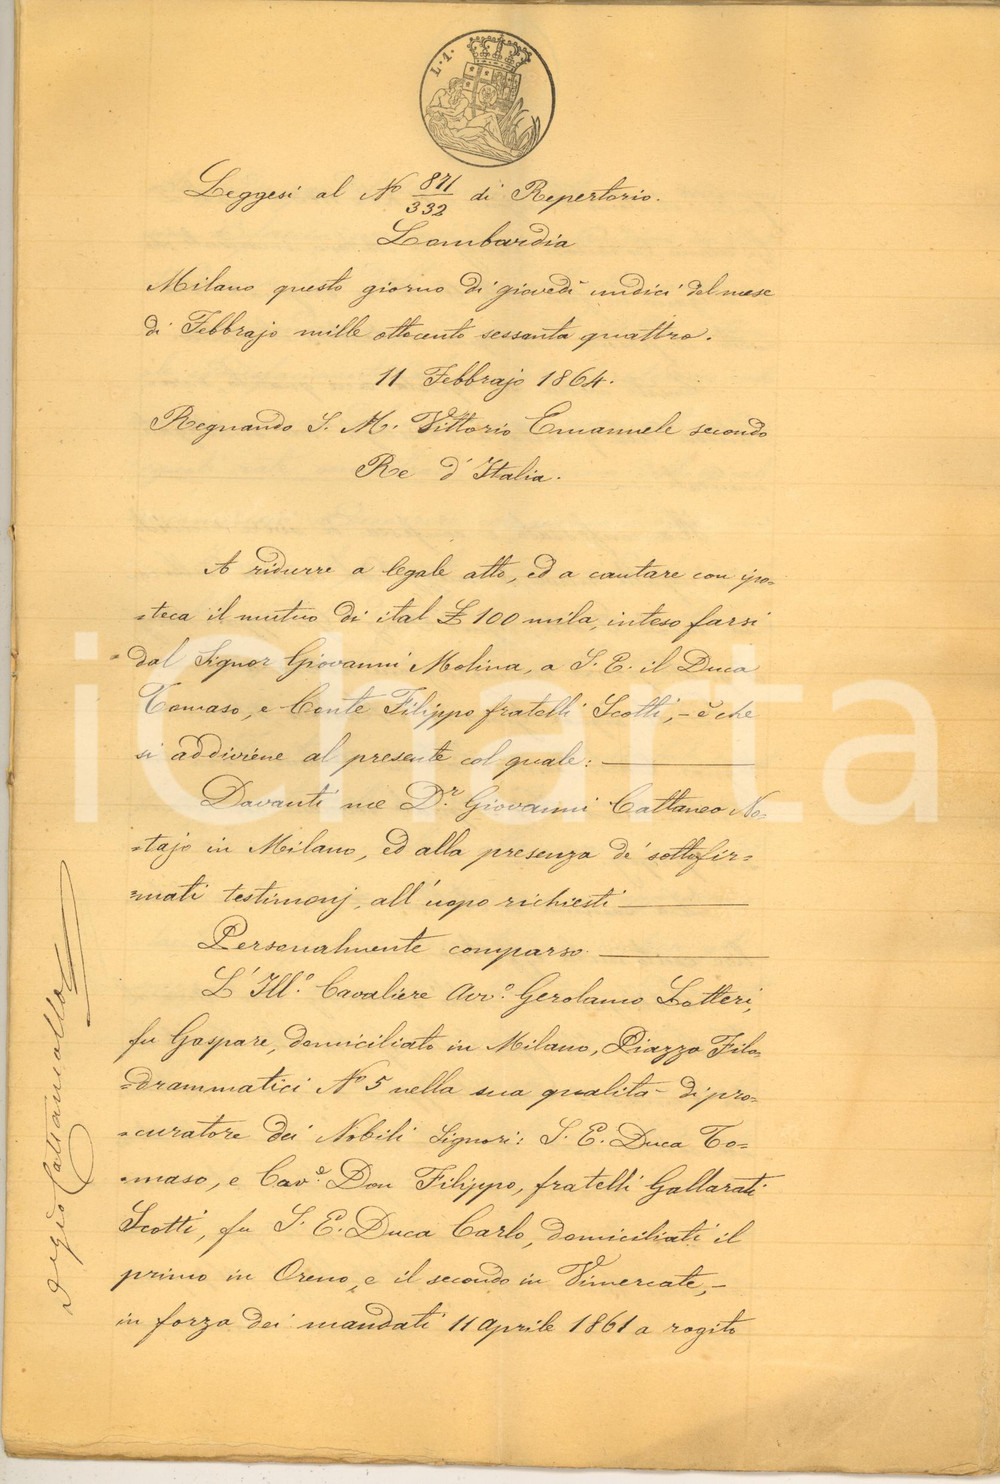 L. 1.
Leggesi al N.º 871/332 di Repertorio.
Lombardia
Milano questo giorno di giovedì undici del mese
di Febbrajo mille ottocento sessanta quattro.
11 Febbrajo 1864.
Regnando S. M. Vittorio Emanuele secondo
Re d'Italia.
A ridurre a legale atto, ed a cautare con ipo=
=teca il mutuo di ital £ 100 mila, inteso farsi
dal Signor Giovanni Molina, a S. E. il Duca
Tomaso, e Conte Filippo fratelli Scotti, – è che
si addiviene al presente col quale:
Davanti me D.r Giovanni Cattaneo No=
=tajo in Milano, ed alla presenza de' sottofir=
=mati testimonj, all'uopo richiesti
Personalmente comparso
L'Ill.º Cavaliere Avv.º Gerolamo Lotteri,
fu Gaspare, domiciliato in Milano, Piazza Filo=
=drammatici Nº 5 nella sua qualità di pro=
=curatore dei Nobili Signori: S. E. Duca To=
=maso, e Cav.e Don Filippo, fratelli Gallarati
Scotti, fu S. E. Duca Carlo, domiciliati il
primo in Oreno, e il secondo in Vimercate, –
in forza dei mandati 11 aprile 1861 a rogito
iCharta